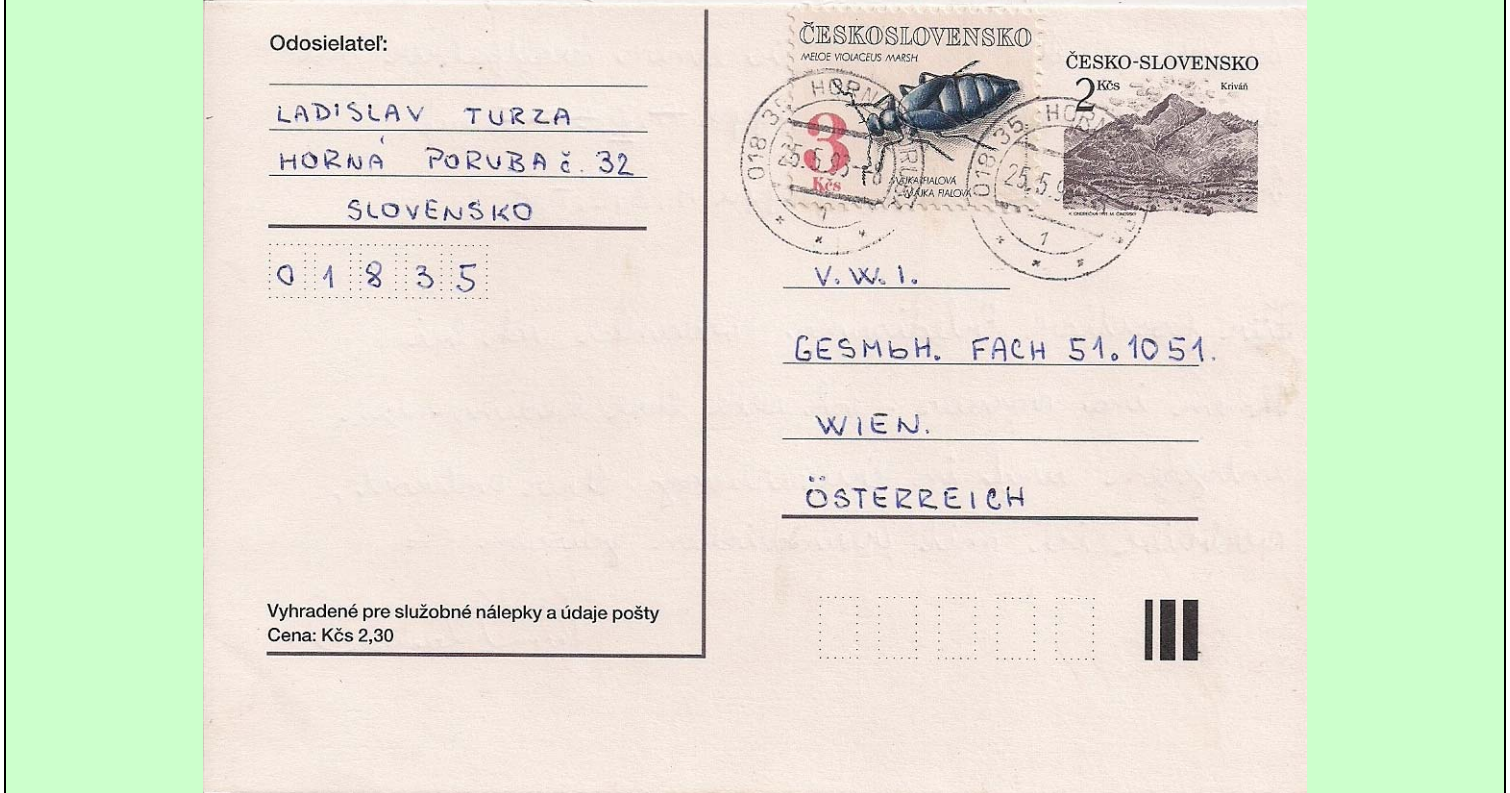 Odosielateľ:
LADISLAV TURZA
HORNÁ PORUBA č. 32
SLOVENSKO
01835
Vyhradené pre služobné nálepky a údaje pošty
Cena: Kčs 2,30
ČESKOSLOVENSKO
MELOE VIOLACEUS MARSH
3
Kčs
MÁJKA FIALOVÁ
ČESKO-SLOVENSKO
2 Kčs
Kriváň
018 35 HORNÁ PORUBA
25.5.93-8
1
018 35 HORNÁ
25.5.9
1
V.W.I.
GESMbH. FACH 51.1051.
WIEN.
ÖSTERREICH